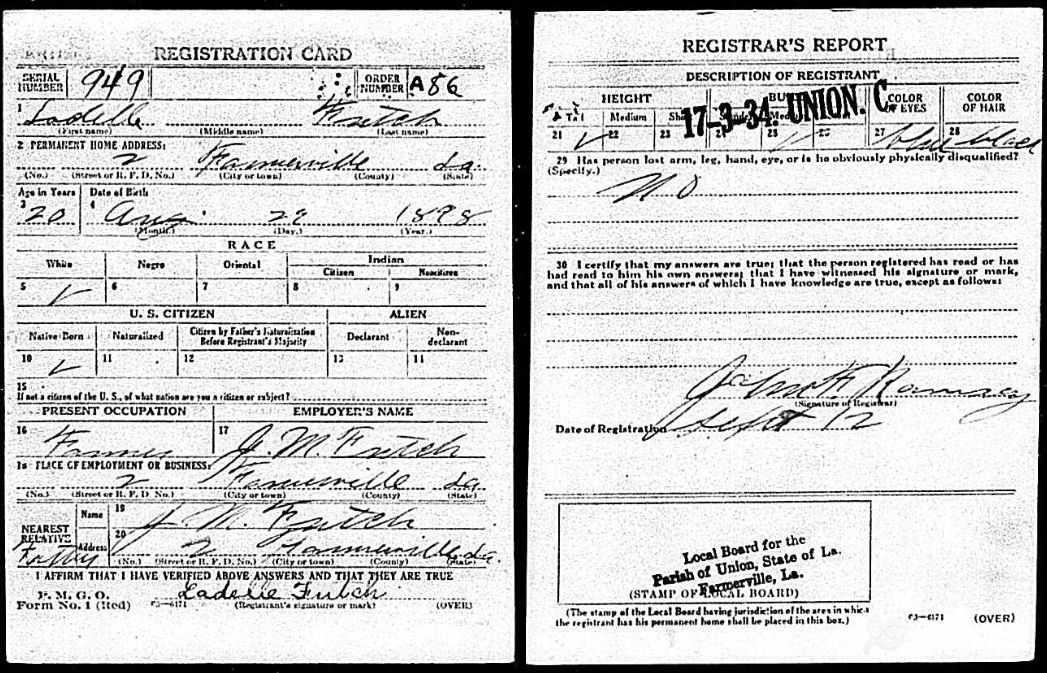 REGISTRATION CARD
SERIAL NUMBER 949 ORDER NUMBER A86
1 Ladelle Fritch
(First name) (Middle name) (Last name)
2 PERMANENT HOME ADDRESS:
2 Farmerville La.
(No.) (Street or R. F. D. No.) (City or town) (County) (State)
Age in Years Date of Birth
3 20 4 Aug. 29 1898
(Month.) (Day.) (Year.)
RACE
White Negro Oriental Indian
Citizen Noncitizen
5 ✓ 6 7 8 9
U. S. CITIZEN ALIEN
Native Born Naturalized Citizen by Father's Naturalization Before Registrant's Majority Declarant Non-declarant
10 ✓ 11 12 13 14
15
If not a citizen of the U. S., of what nation are you a citizen or subject?
PRESENT OCCUPATION EMPLOYER'S NAME
16 Farmer 17 J. M. Fritch
18 PLACE OF EMPLOYMENT OR BUSINESS:
2 Farmerville La.
(No.) (Street or R. F. D. No.) (City or town) (County) (State)
NEAREST RELATIVE Name 19 J. M. Fritch
Address 20 2 Farmerville La.
(No.) (Street or R. F. D. No.) (City or town) (County) (State)
I AFFIRM THAT I HAVE VERIFIED ABOVE ANSWERS AND THAT THEY ARE TRUE
P. M. G. O.
Form No. 1 (Red) C3—6171 Ladelle Futch
(Registrant's signature or mark) (OVER)
REGISTRAR'S REPORT
17-3-34. UNION. C
DESCRIPTION OF REGISTRANT
HEIGHT COLOR OF EYES COLOR OF HAIR
Tall Medium
21 ✓ 22 23 25 ✓ 26 27 blue 28 black
29 Has person lost arm, leg, hand, eye, or is he obviously physically disqualified?
(Specify.) NO
30 I certify that my answers are true; that the person registered has read or has
had read to him his own answers; that I have witnessed his signature or mark,
and that all of his answers of which I have knowledge are true, except as follows:
Ramsey
(Signature of Registrar)
Date of Registration Sept 12
Local Board for the
Parish of Union, State of La.
Farmerville, La.
(STAMP OF LOCAL BOARD)
(The stamp of the Local Board having jurisdiction of the area in which
the registrant has his permanent home shall be placed in this box.)
C3—6171 (OVER)